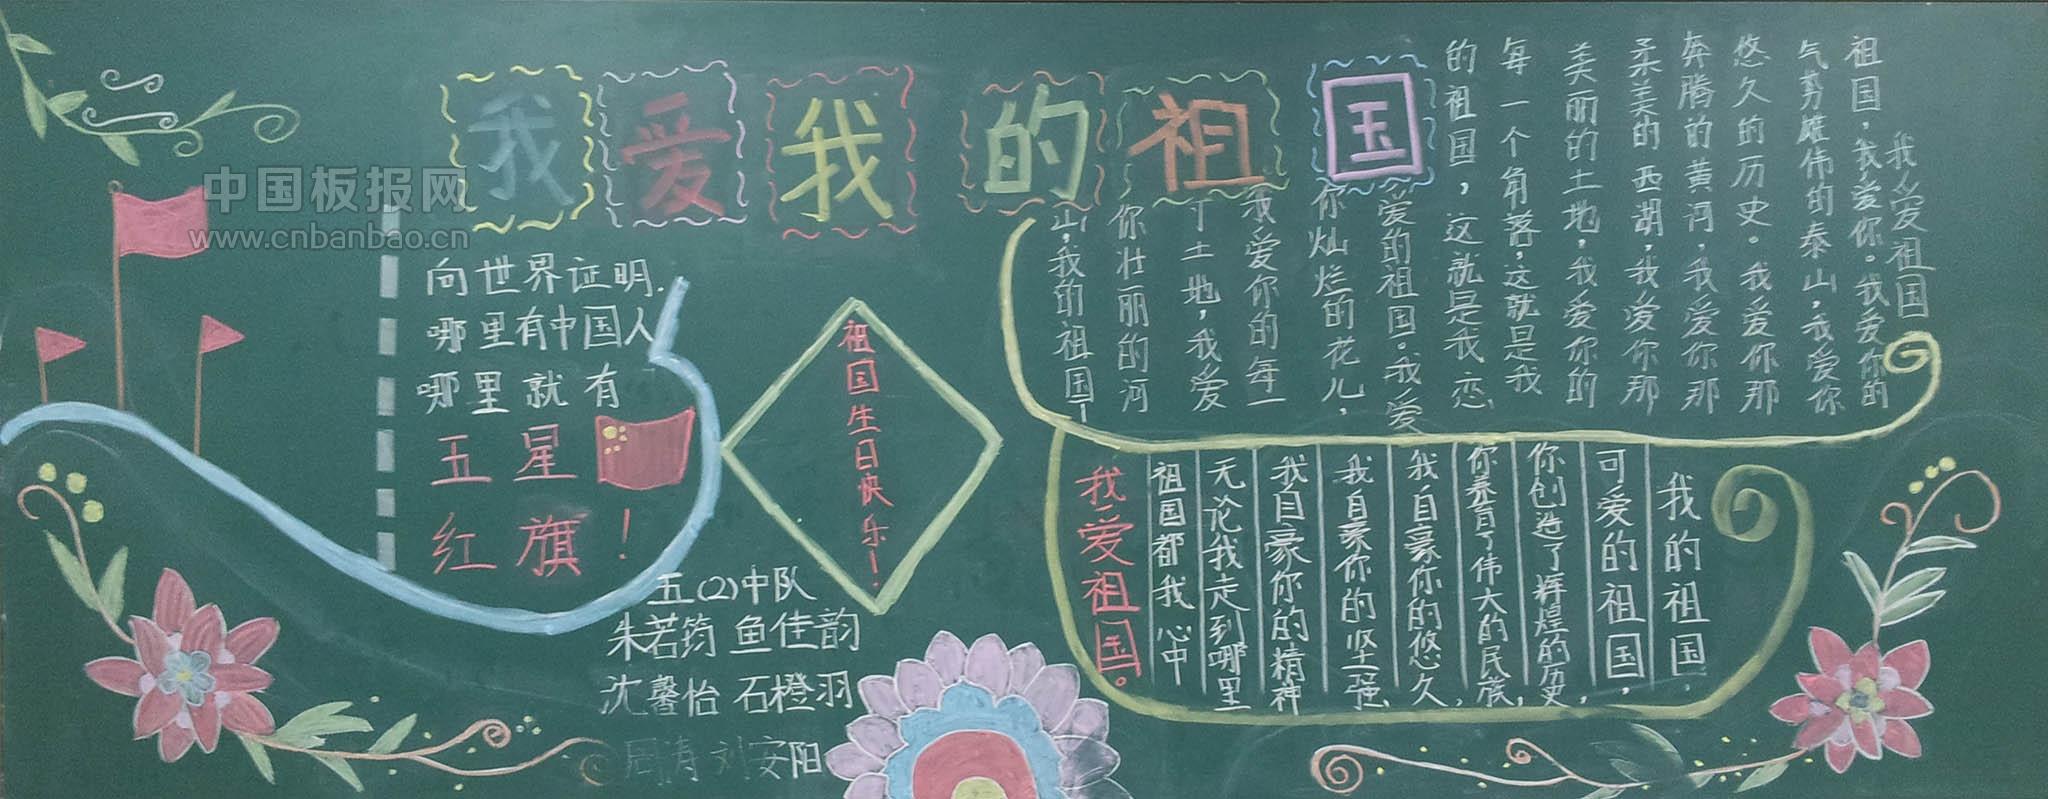 我爱我的祖国
中国板报网
www.cnbanbao.cn
向世界证明.
哪里有中国人
哪里就有
五星
红旗！
祖国生日快乐！
五(2)中队
朱若筠 鱼佳韵
沈馨怡 石橙羽
周涛 刘安阳
我爱祖国
祖国，我爱你。我爱你的
气势雄伟的泰山，我爱你
悠久的历史。我爱你那
奔腾的黄河，我爱你那
柔美的西湖，我爱你那
美丽的土地，我爱你的
每一个角落，这就是我
的祖国，这就是我恋
爱的祖国。我爱
你灿烂的花儿，
我爱你的每一
寸土地，我爱
你壮丽的河
山，我的祖国！
我的祖国，
可爱的祖国，
你创造了辉煌的历史，
你养育了伟大的民族，
我自豪你的悠久，
我自豪你的坚强
我自豪你的精神
无论我走到哪里
祖国都我心中
我爱祖国。